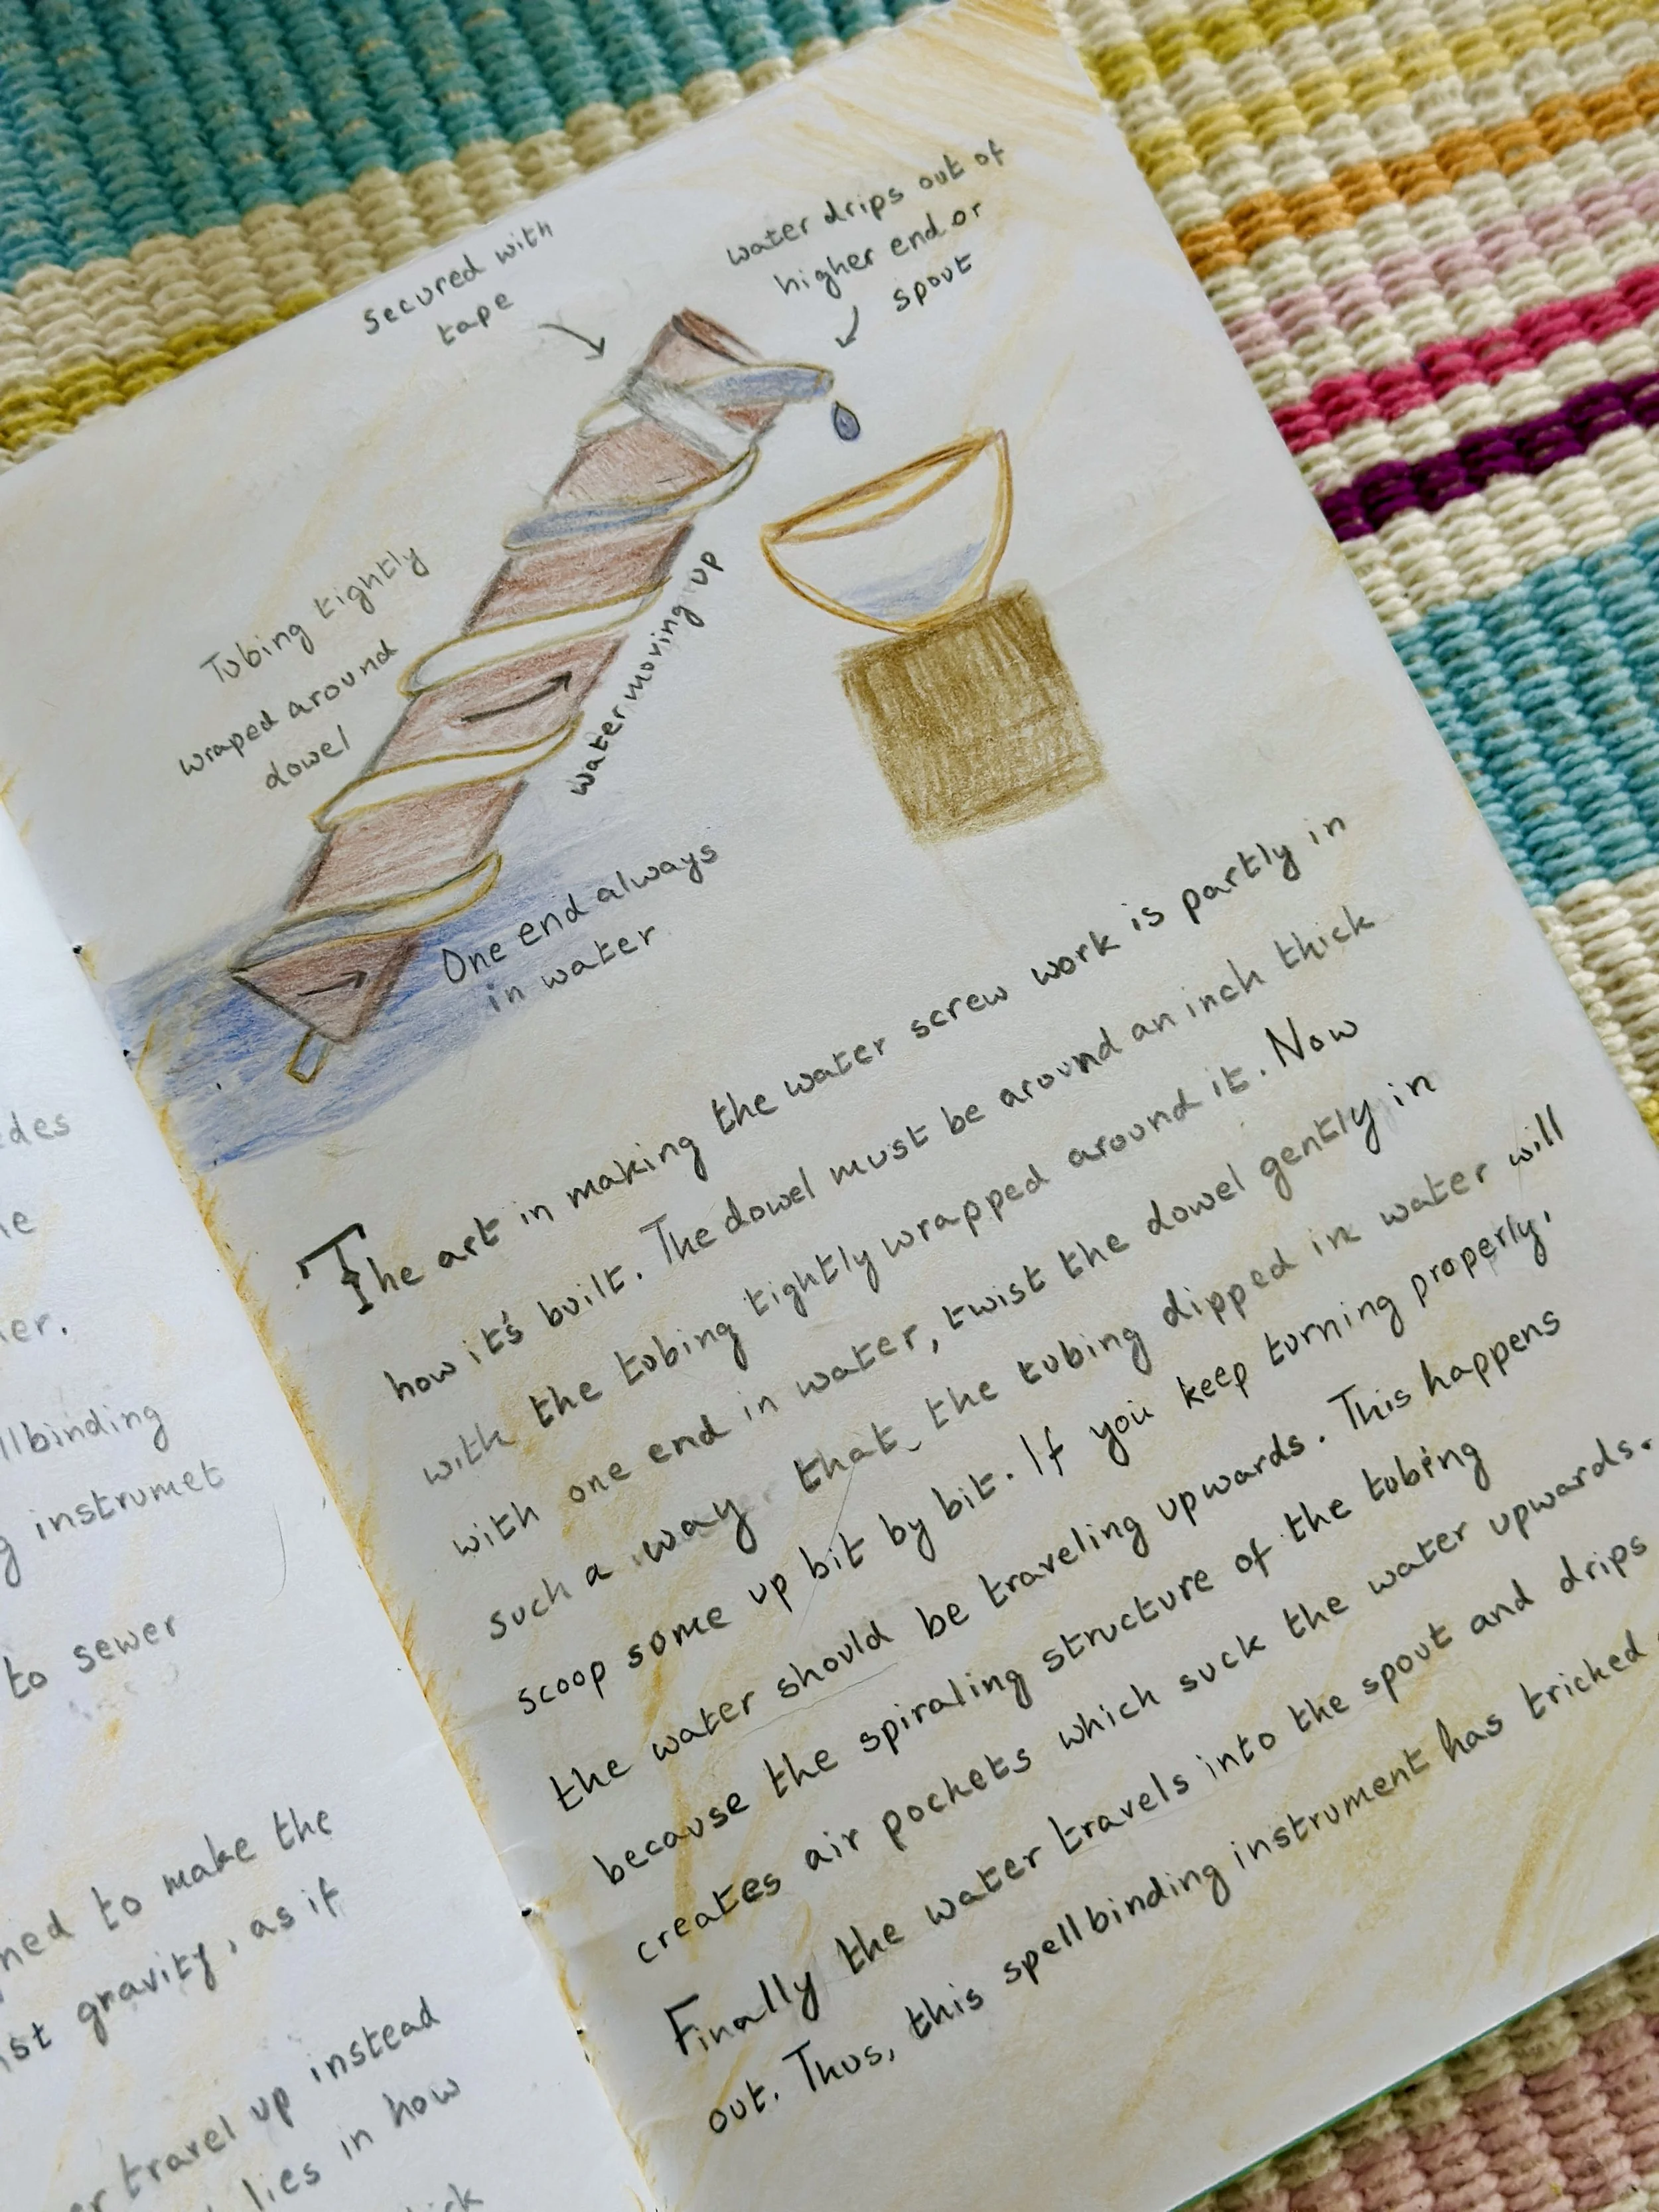 edes
er.
llbinding
g instrumet
to sewer
ned to make the
st gravity, as if
travel up instead
lies in how
Secured with
tape
water drips out of
higher end or
spout
Tubing tightly
wraped around
dowel
water moving up
One end always
in water
The art in making the water screw work is partly in
how it's built. The dowel must be around an inch thick
with the tubing tightly wrapped around it. Now
with one end in water, twist the dowel gently in
such a way that the tubing dipped in water will
scoop some up bit by bit. If you keep turning properly,
the water should be traveling upwards. This happens
because the spiraling structure of the tubing
creates air pockets which suck the water upwards.
Finally the water travels into the spout and drips
out. Thus, this spellbinding instrument has tricked